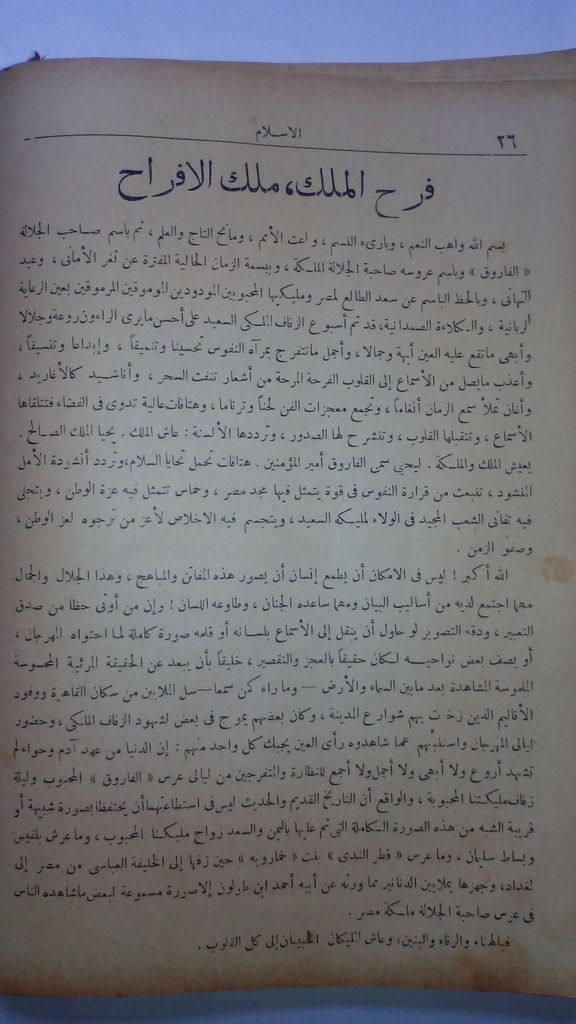 ٢٦
الاسلام
فرح الملك، ملك الافراح
بسم الله واهب النعم ، وبارىء النسم ، وباعث الأمم ، ومانح التاج والعلم ، ثم باسم صاحب الجلالة
« الفاروق » وباسم عروسه صاحبة الجلالة الملكة ، وببسمة الزمان الحالية المفترة عن ثغر الأمانى ، وعيد
التهانى ، وبالحظ الباسم عن سعد الطالع لمصر ومليكيها المحبوبين المودودين الموموقين المرموقين بعين الرعاية
الربانية ، والكلاءة الصمدانية، قد تم أسبوع الزفاف الملكى السعيد على أحسن مايرى الراءون روعة وجلالا
وأبهى ماتقع عليه العين أبهة وجمالا، وأجمل ماتنفرج بمرآه النفوس تحسينا وتنميقا ، وإبداعا وتنسيقا ،
وأعذب مايصل من الأسماع إلى القلوب الفرحة المرحة من أشعار تنفث السحر ، وأناشيد كالأغاريد ،
وأغان تملأ سمع الزمان أنغاما ، وتجمع معجزات الفن لحنا وترناما ، وهتافات عالية تدوى فى الفضاء فتتلقاها
الأسماع ، وتتقبلها القلوب ، وتنشرح لها الصدور ، وترددها الألسنة : عاش الملك . يحيا الملك الصالح .
يعيش الملك والملكة . ليحيى سمى الفاروق أمير المؤمنين . هتافات تحمل تحايا السلام،وتردد أنشودة الأمل
المنشود ، تنبعث من قرارة النفوس فى قوة يتمثل فيها مجد مصر ، وحماس تتمثل فيه عزة الوطن ، ويتجلى
فيه تفانى الشعب المجيد فى الولاء لمليكه السعيد ، ويتجسم فيه الاخلاص لأعز من ترجوه لعز الوطن ،
وصفو الزمن .
الله أكبر ! ليس فى الامكان أن يطمع إنسان أن يصور هذه المفاتن والمباهج ، وهذا الجلال والجمال
مهما اجتمع لديه من أساليب البيان ومهما ساعده الجنان ، وطاوعه اللسان ! وإن من أوتى حظا من صدق
التعبير ، ودقة التصوير لو حاول أن ينقل إلى الأسماع بلسانه أو قلمه صورة كاملة لما احتواه المهرجان ،
أو يصف بعض نواحيه لكان حقيقاً بالعجز والتقصير ، خليقاً بأن يبعد عن الحقيقة المرئية المحسوسة
الملموسة المشاهدة بعد مابين السماء والأرض — وما راء كمن سمعا — سل الملايين من سكان القاهرة ووفود
الأقاليم الذين زخرت بهم شوارع المدينة ، وكان بعضهم يموج فى بعض لشهود الزفاف الملكى ، وحضور
ليالى المهرجان واستنبئهم عما شاهدوه رأى العين يجبك كل واحد منهم : إن الدنيا من عهد آدم وحواء لم
تشهد أروع ولا أبهى ولا أجمل ولا أجمع للنظارة والمتفرجين من ليالى عرس « الفاروق » المحبوب وليلة
زفاف مليكتنا المحبوبة ، والواقع أن التاريخ القديم والحديث ليس فى استطاعتهما أن يحتفظا بصورة شبيهة أو
قريبة الشبه من هذه الصورة الكاملة التى تم عليها باليمن والسعد زواج مليكنا المحبوب ، وما عرش بلقيس
وبساط سليمان ، وما عرس « قطر الندى » بنت « خمارويه » حين زفها إلى الخليفة العباسى من مصر إلى
بغداد، وجهزها بملايين الدنانير مما ورثه عن أبيه أحمد ابن طولون إلا صورة مسموعة لبعض ماشاهده الناس
فى عرس صاحبة الجلالة ملكة مصر .
فبالهناء والرفاء والبنين، وعاش المليكان الحبيبان إلى كل القلوب .